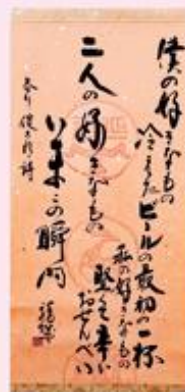 僕の好きなもの
冷えたビールの最初の一杯
私の好きなもの
堅くて辛い
おせんべい
二人の好きなもの
いまこの瞬間